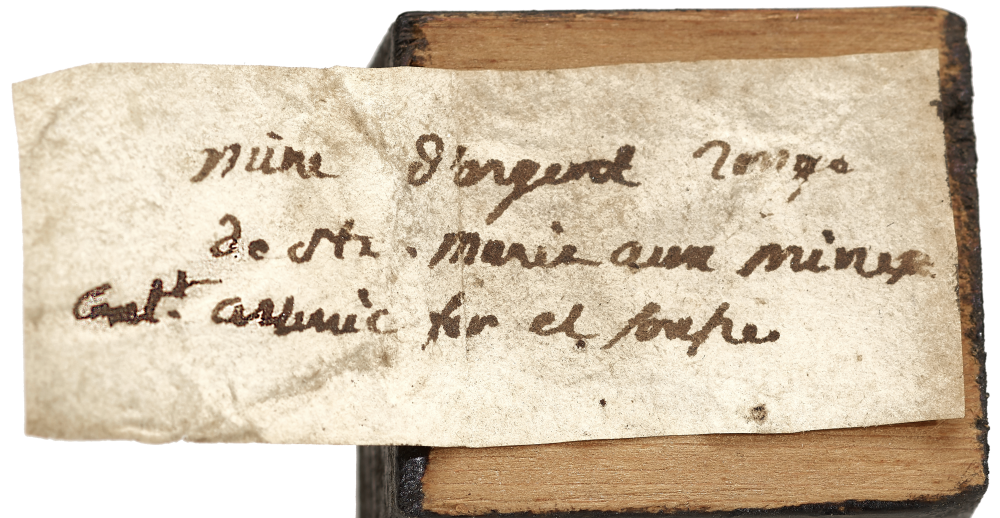 mine d'argent rouge
de Ste. marie aux mines
Cont.t arsenic fer et soufre